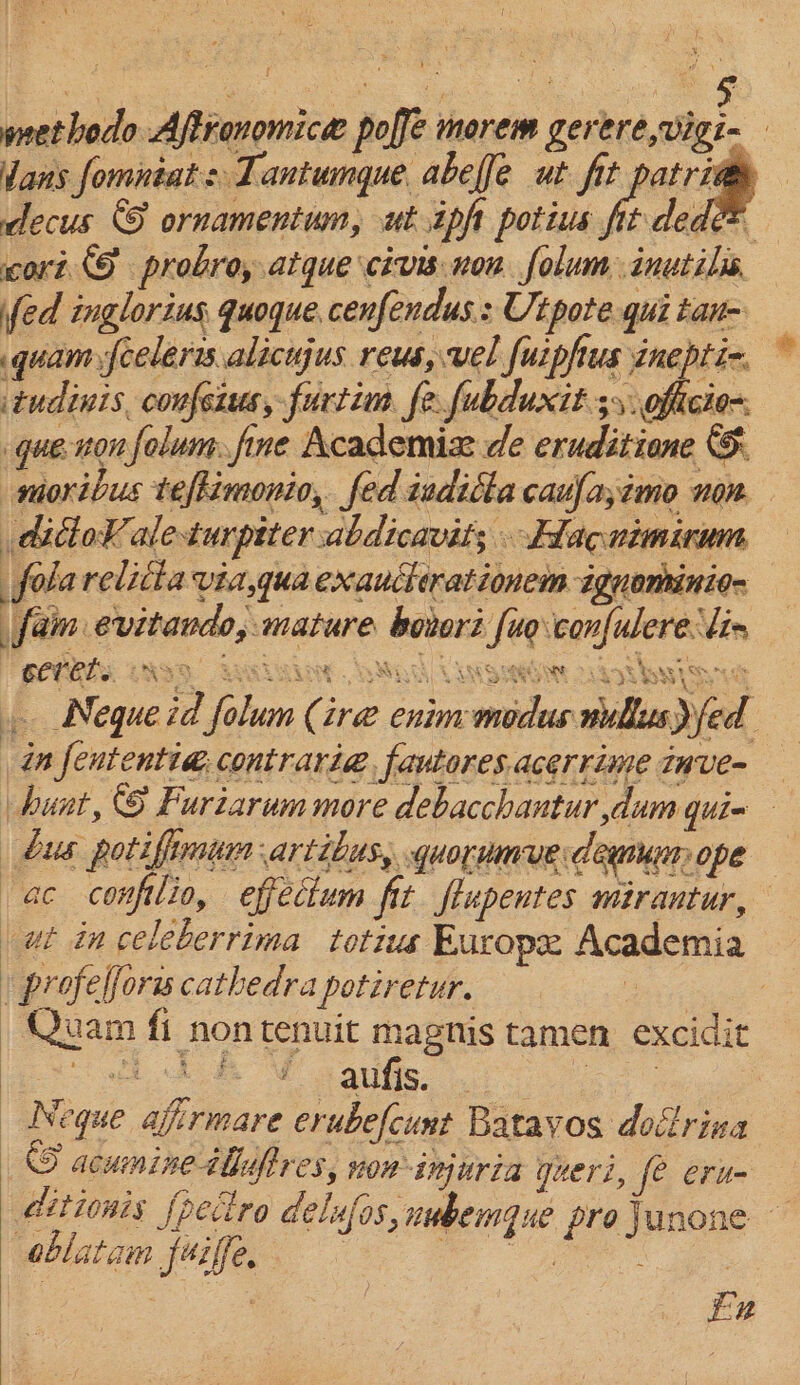 5
methodo Aſtronomicæ poſſe morem gerere, vigi-
lans ſomniat: Tantumque abeſſe ut ſit patriæ
decus & ornamentum, ut ipſi potius ſit dede-
cori & probro, atque civis non ſolum inutilis
ſed inglorius quoque cenſendus: Utpote qui tan-
quam ſceleris alicujus reus, vel ſuipſius inepti-
tudinis conſcius, furtim ſe ſubduxit; officio-
que non ſolum ſine Academiæ de eruditione &
moribus teſtimonio, ſed indicta cauſa, imo non
dicto Vale turpiter abdicavit; Hac nimirum
ſola relicta via, qua exauctorationem ignominio-
ſam evitando, mature honori ſuo conſulere li-
ceret.
Neque id ſolum (iræ enim modus nullus) ſed
in ſententiæ contrariæ fautores acerrime inve-
hunt, & Furiarum more debacchantur, dum qui-
bus potiſſimum artibus, quorumve demum ope
ac conſilio, effectum ſit ſtupentes mirantur,
ut in celeberrima totius Europæ Academia
profeſſoris cathedra potiretur.
Quam ſi non tenuit magnis tamen excidit
auſis.
Neque affirmare erubeſcunt Batavos doctrina
& acumine illuſtres, non injuria queri, ſe eru-
ditionis ſpectro deluſos, nubemque pro Junone
oblatam fuiſſe.
En